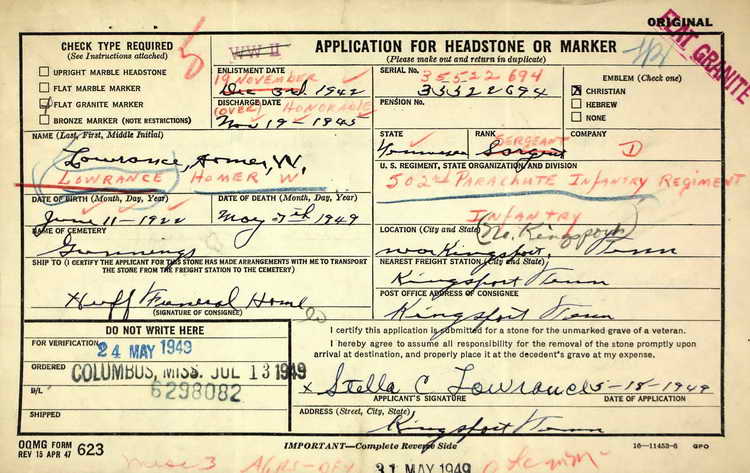 ORIGINAL
FLAT GRANITE
CHECK TYPE REQUIRED
(See Instructions attached)
5
UPRIGHT MARBLE HEADSTONE
FLAT MARBLE MARKER
FLAT GRANITE MARKER
BRONZE MARKER (NOTE RESTRICTIONS)
WW II
APPLICATION FOR HEADSTONE OR MARKER
(Please make out and return in duplicate)
ENLISTMENT DATE
19 NOVEMBER
Dec 3rd 1942
DISCHARGE DATE
(OVER) HONORABLE
Nov 19-1945
SERIAL No.
35522694
35522694
PENSION No.
EMBLEM (Check one)
X CHRISTIAN
HEBREW
NONE
NAME (Last, First, Middle Initial)
Lowrance, Homer, W.
LOWRANCE HOMER W
STATE
Tennessee
RANK
SERGEANT
Sargent
COMPANY
D
U. S. REGIMENT, STATE ORGANIZATION, AND DIVISION
502nd PARACHUTE INFANTRY REGIMENT
INFANTRY
DATE OF BIRTH (Month, Day, Year)
June 11-1922
DATE OF DEATH (Month, Day, Year)
May 7th 1949
NAME OF CEMETERY
Gunnings
LOCATION (City and State)
(No. Kingsport)
Kingsport, Tenn
SHIP TO (I CERTIFY THE APPLICANT FOR THIS STONE HAS MADE ARRANGEMENTS WITH ME TO TRANSPORT
THE STONE FROM THE FREIGHT STATION TO THE CEMETERY)
Huff Funeral Home
(SIGNATURE OF CONSIGNEE)
NEAREST FREIGHT STATION (City and State)
Kingsport Tenn
POST OFFICE ADDRESS OF CONSIGNEE
Kingsport Tenn
DO NOT WRITE HERE
FOR VERIFICATION
24 MAY 1949
ORDERED
COLUMBUS, MISS. JUL 13 1949
B/L
6298082
SHIPPED
I certify this application is submitted for a stone for the unmarked grave of a veteran.
I hereby agree to assume all responsibility for the removal of the stone promptly upon
arrival at destination, and properly place it at the decedent's grave at my expense.
x Stella C Lowrance 5-18-1949
APPLICANT'S SIGNATURE
DATE OF APPLICATION
ADDRESS (Street, City, State)
Kingsport Tenn
OQMG FORM
REV 15 APR 47 623
IMPORTANT—Complete Reverse Side
16—11453-6 GPO
31 MAY 1949